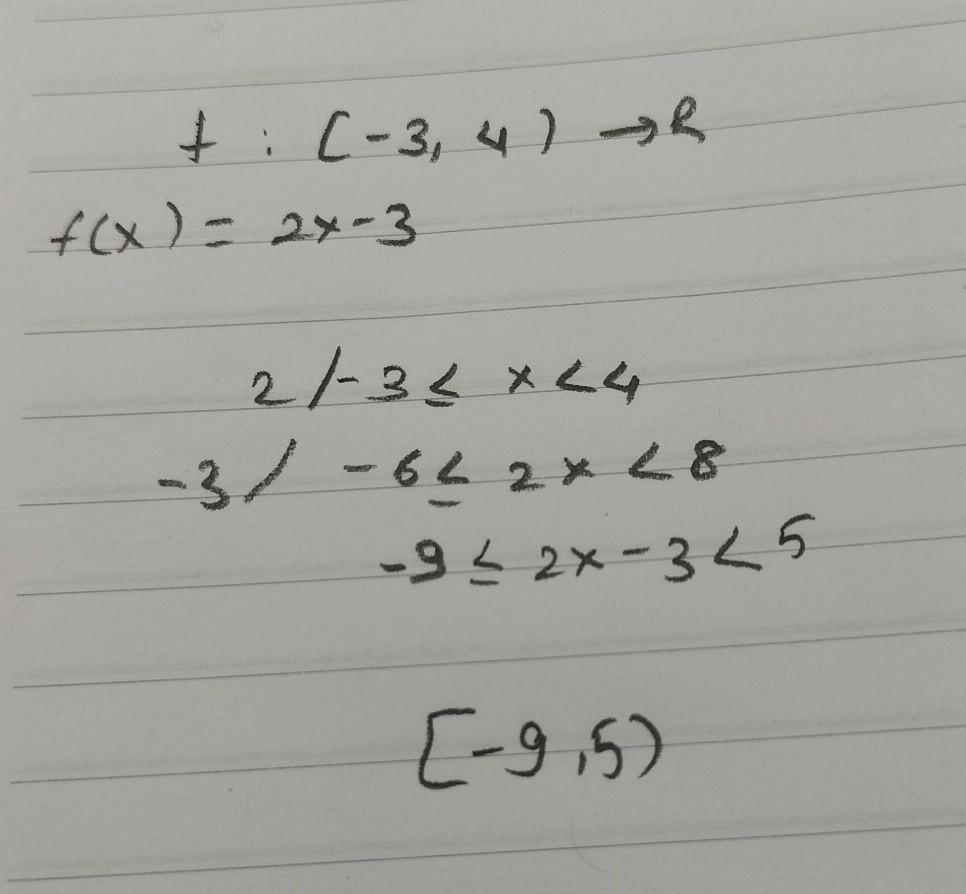 f : [-3, 4) → R
f(x) = 2x-3
2 / -3 ≤ x < 4
-3 / -6 ≤ 2x < 8
-9 ≤ 2x - 3 < 5
[-9,5)